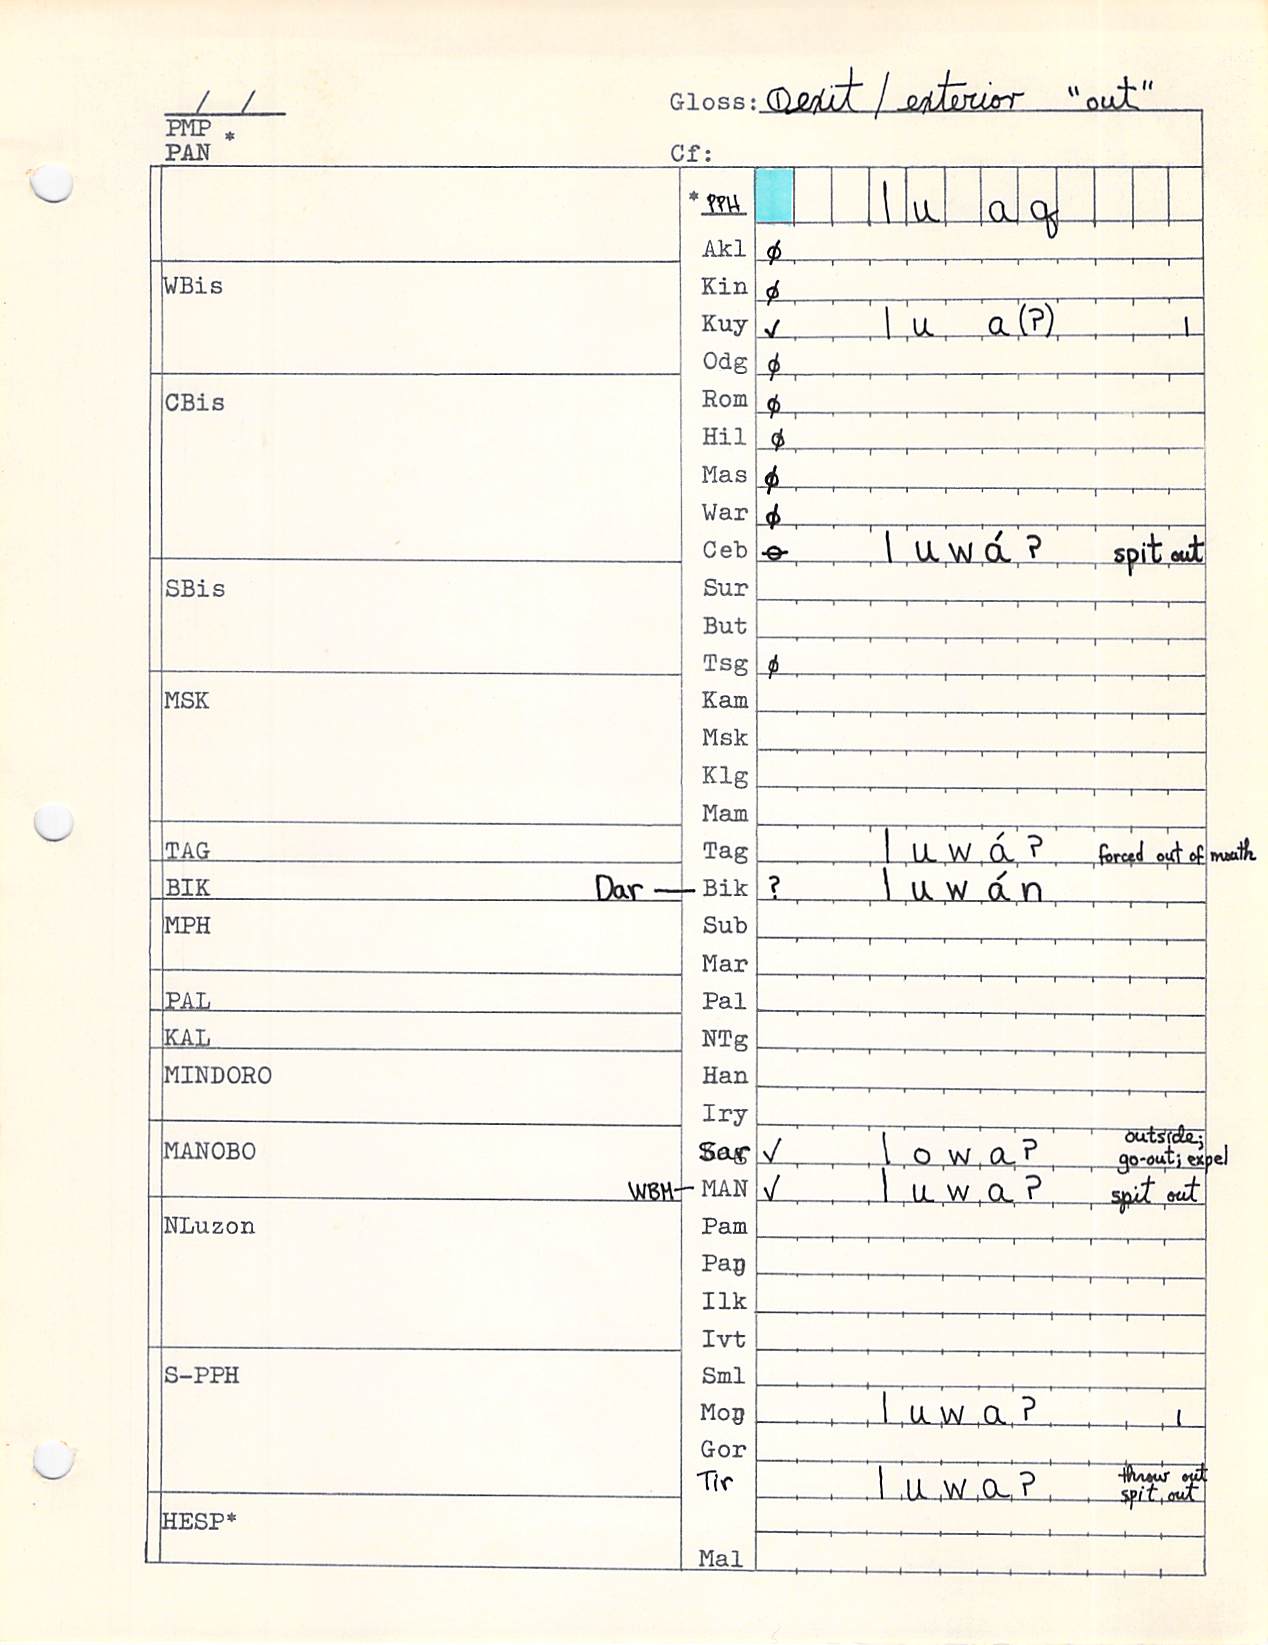 / /
Gloss: ① exit / exterior "out"
PMP *
PAN
Cf:
* PPH l u a q
Akl ∅
WBis
Kin ∅
Kuy ✓ l u a (ʔ) 1
Odg ∅
CBis
Rom ∅
Hil ∅
Mas ∅
War ∅
Ceb ⊖ l u w á ʔ spit out
SBis
Sur
But
Tsg ∅
MSK
Kam
Msk
Klg
Mam
TAG
Tag l u w á ʔ forced out of mouth
BIK
Dar — Bik ? l u w á n
MPH
Sub
Mar
PAL
Pal
KAL
NTg
MINDORO
Han
Iry
MANOBO
Sar ✓ l o w a ʔ outside;
go-out; expel
WBM — MAN ✓ l u w a ʔ spit out
NLuzon
Pam
Paŋ
Ilk
Ivt
S-PPH
Sml
Moŋ l u w a ʔ 1
Gor
Tir l u w a ʔ throw out
spit out
HESP*
Mal